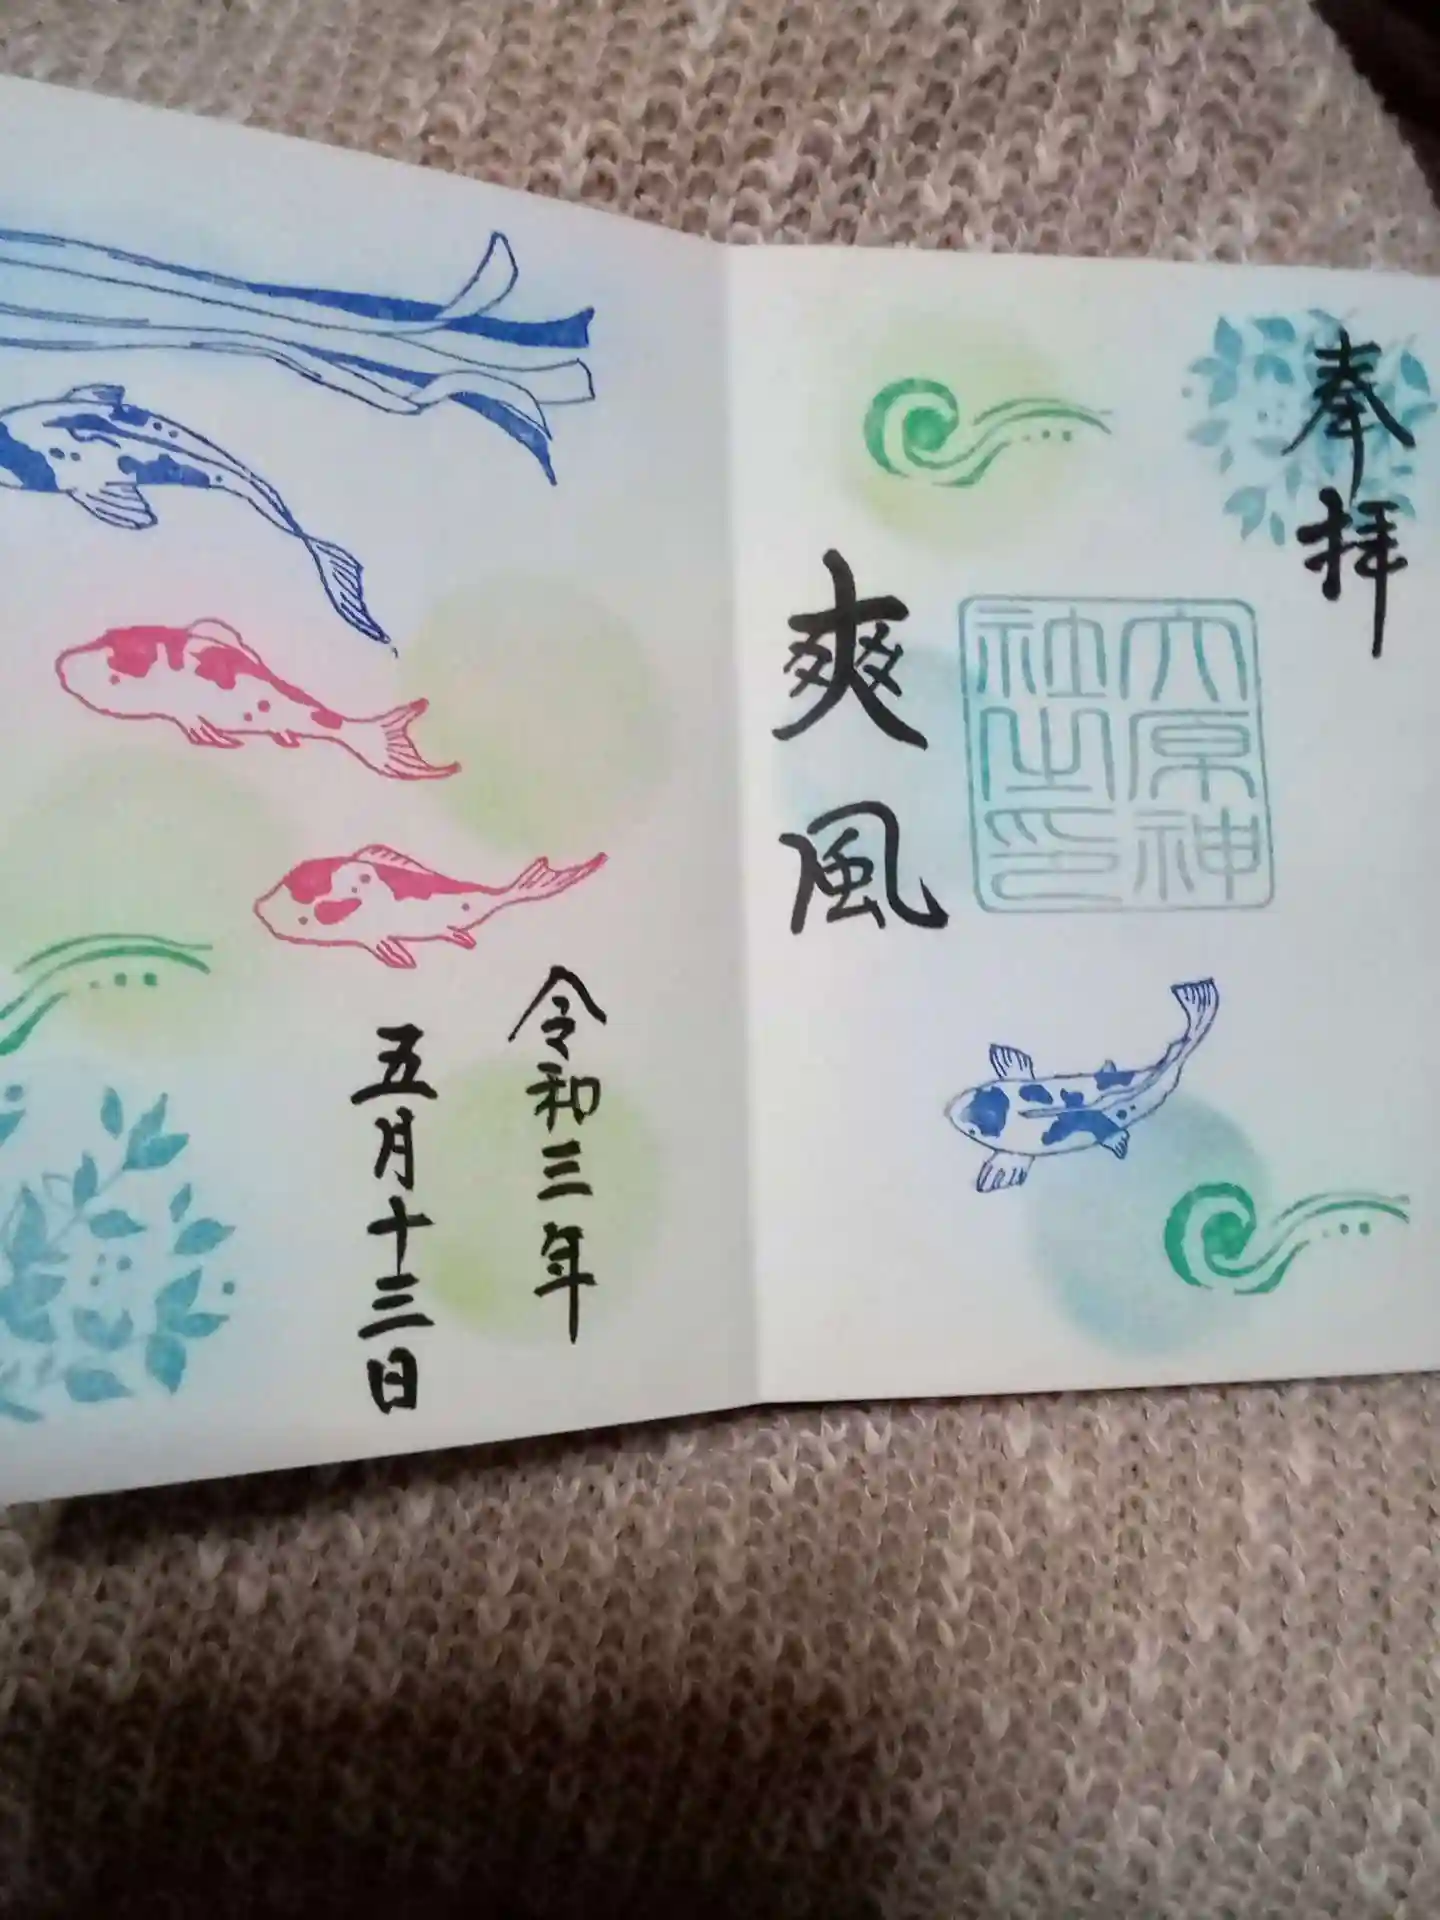 奉拝
六原神
社之印
爽風
令和三年
五月十三日